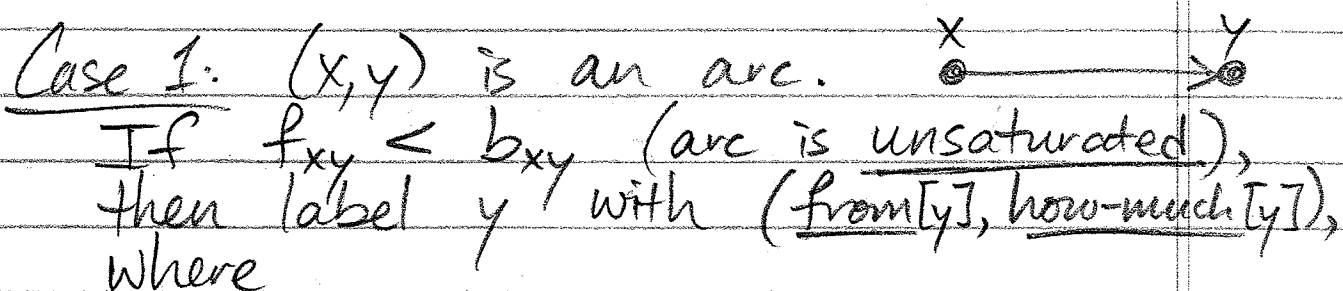 X Y
Case 1: (x,y) is an arc.
If fxy < bxy (arc is unsaturated),
then label y with (from[y], how-much[y]),
where